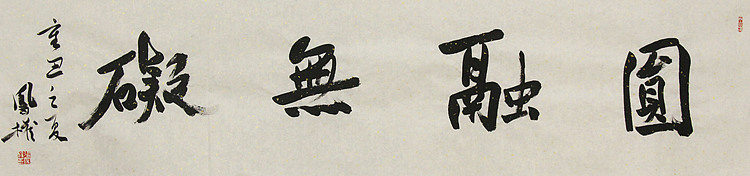 圓融無礙
辛丑之夏
鳳權